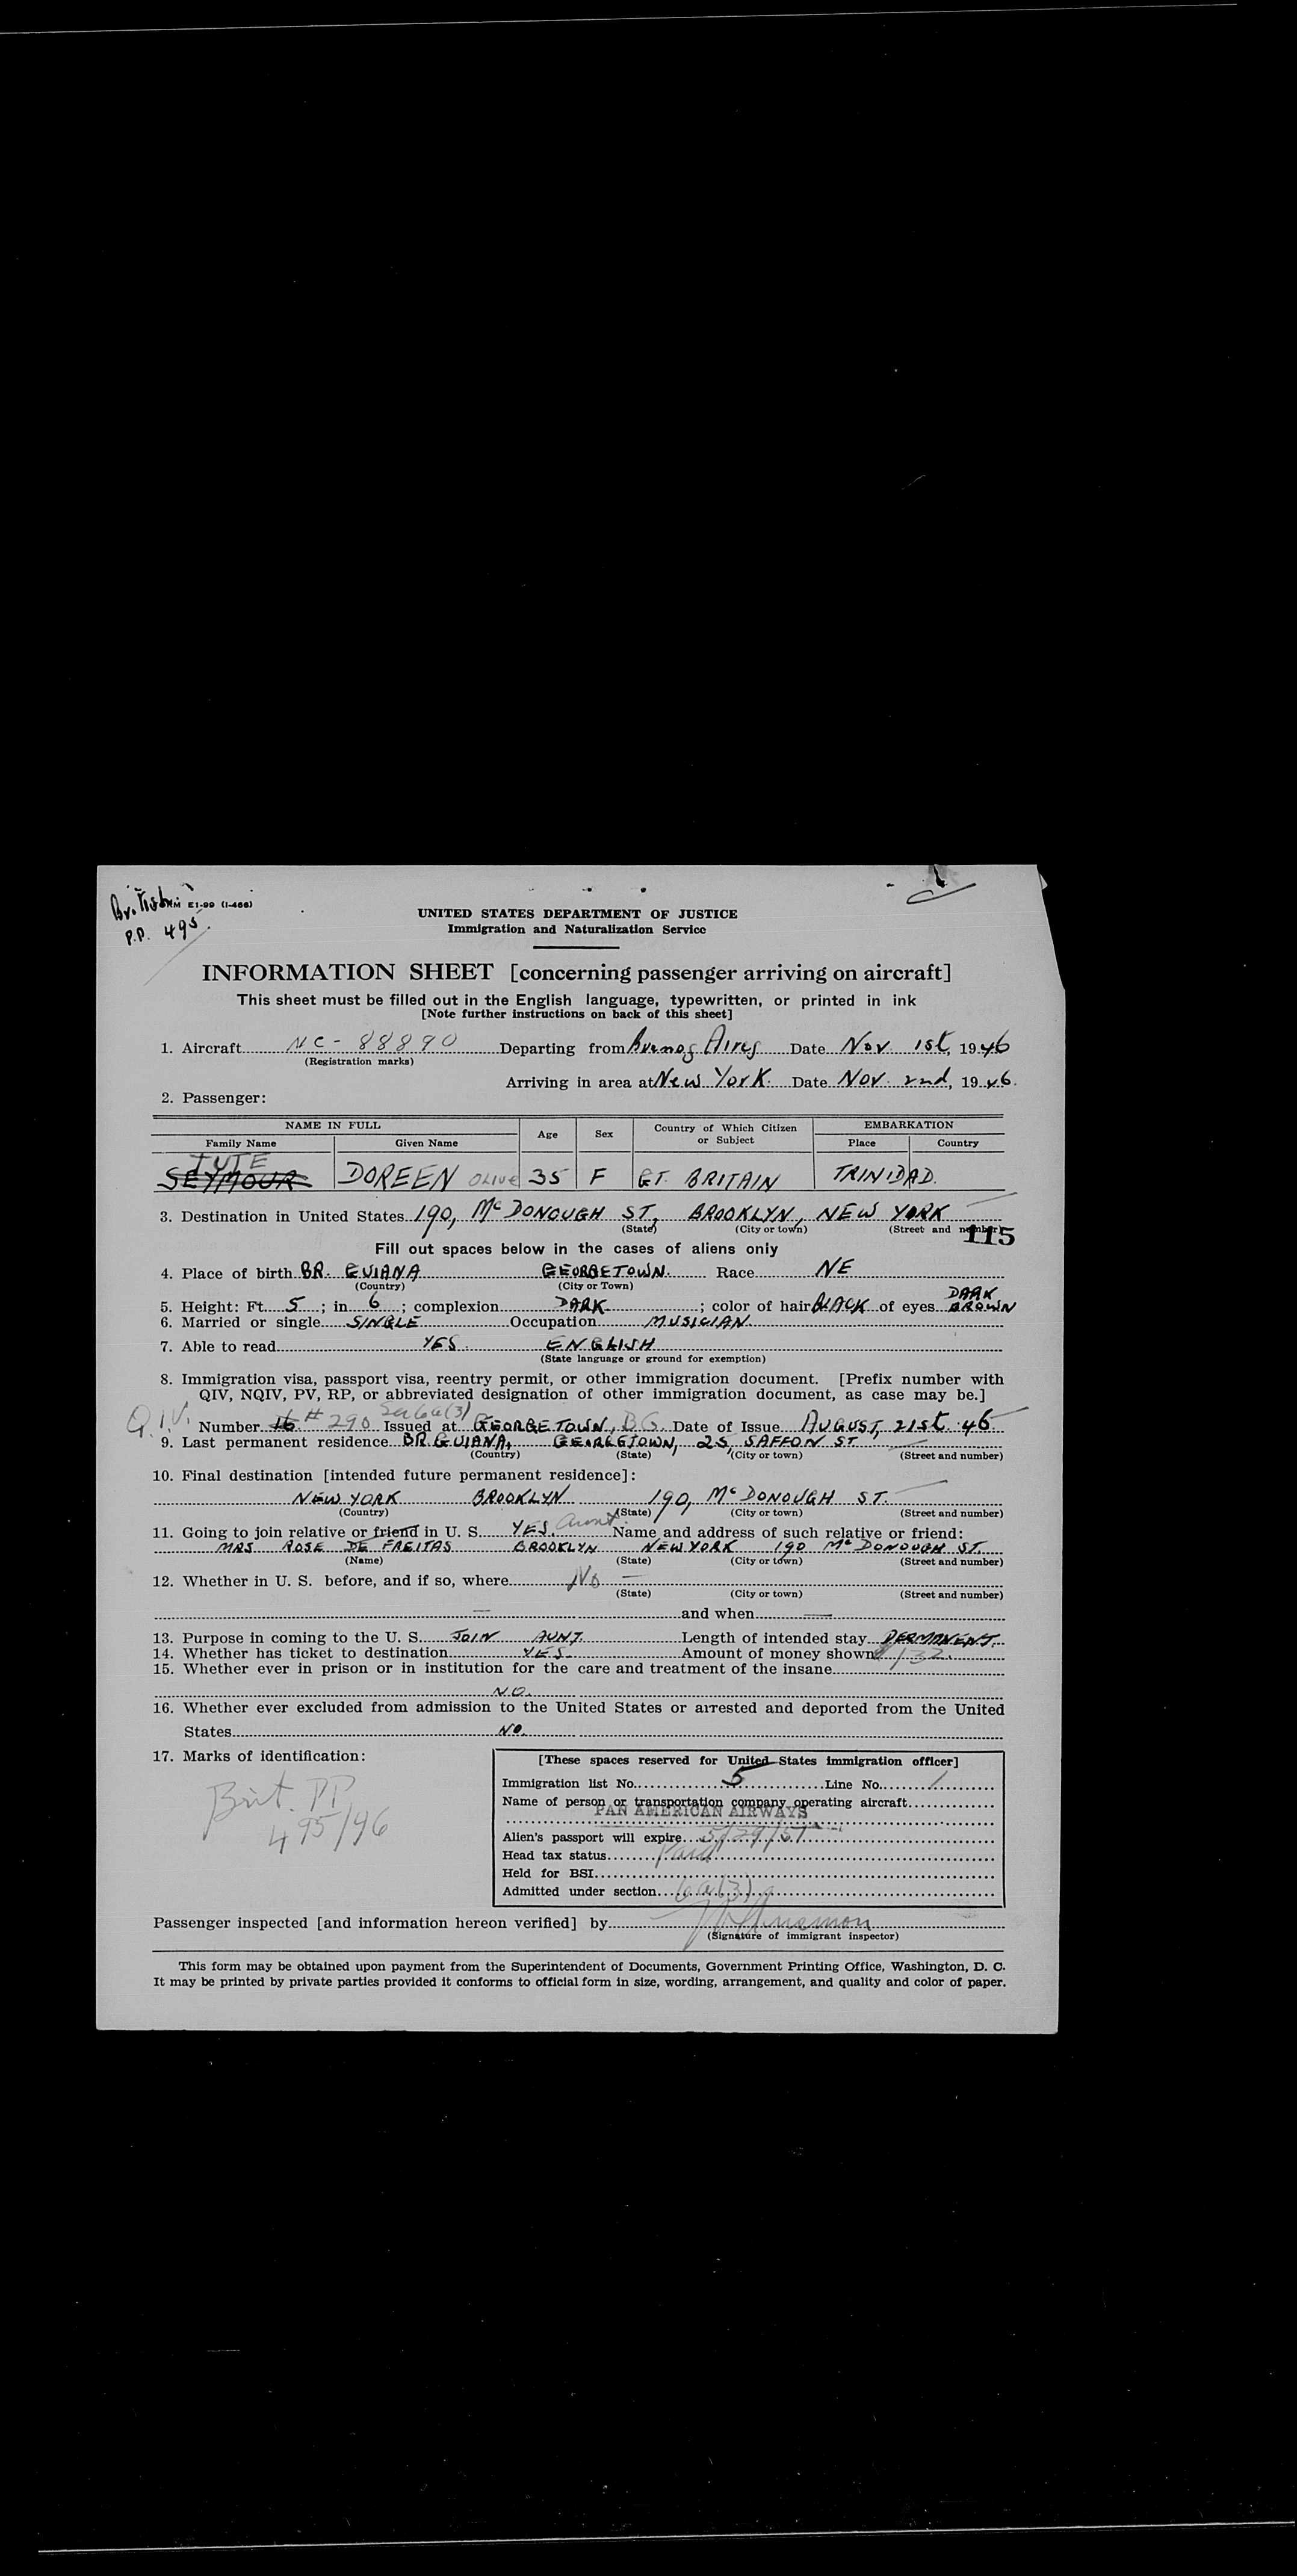 British FORM E1-99 (I-466)
P.P. 495.
UNITED STATES DEPARTMENT OF JUSTICE
Immigration and Naturalization Service
INFORMATION SHEET [concerning passenger arriving on aircraft]
This sheet must be filled out in the English language, typewritten, or printed in ink
[Note further instructions on back of this sheet]
1. Aircraft NC-88890 Departing from Buenos Aires Date Nov. 1st, 1946
(Registration marks)
Arriving in area at New York. Date Nov. 2nd, 1946.
2. Passenger:
NAME IN FULL Age Sex Country of Which Citizen or Subject EMBARKATION
Family Name Given Name Place Country
TUTE
SEYMOUR DOREEN OLIVE 35 F GT. BRITAIN TRINIDAD.
3. Destination in United States 190, McDONOUGH ST, BROOKLYN, NEW YORK
(State) (City or town) (Street and number)
115
Fill out spaces below in the cases of aliens only
4. Place of birth BR. GUIANA GEORGETOWN. Race NE
(Country) (City or Town)
5. Height: Ft. 5; in 6; complexion DARK; color of hair BLACK of eyes DARK BROWN
6. Married or single SINGLE Occupation MUSICIAN.
7. Able to read YES. ENGLISH
(State language or ground for exemption)
8. Immigration visa, passport visa, reentry permit, or other immigration document. [Prefix number with
QIV, NQIV, PV, RP, or abbreviated designation of other immigration document, as case may be.]
Q.I.V. Number 16 # 290 Sec 6a(3) Issued at GEORGETOWN, B.G. Date of Issue AUGUST, 21st 46
9. Last permanent residence BR. GUIANA, GEORGETOWN, 25, SAFFON ST
(Country) (State) (City or town) (Street and number)
10. Final destination [intended future permanent residence]:
NEW YORK BROOKLYN 190, McDONOUGH ST.
(Country) (State) (City or town) (Street and number)
11. Going to join relative or friend in U. S. YES. Aunt. Name and address of such relative or friend:
MRS ROSE DE FREITAS BROOKLYN NEW YORK 190 McDONOUGH ST.
(Name) (State) (City or town) (Street and number)
12. Whether in U. S. before, and if so, where No —
(State) (City or town) (Street and number)
— and when —
13. Purpose in coming to the U. S. JOIN AUNT. Length of intended stay PERMANENT.
14. Whether has ticket to destination YES. Amount of money shown $132.
15. Whether ever in prison or in institution for the care and treatment of the insane
NO.
16. Whether ever excluded from admission to the United States or arrested and deported from the United
States NO.
17. Marks of identification:
Brit. PP
495/46
[These spaces reserved for United States immigration officer]
Immigration list No. 5 Line No. 1
Name of person or transportation company operating aircraft
PAN AMERICAN AIRWAYS
Alien's passport will expire 5/29/51
Head tax status Paid
Held for BSI
Admitted under section 6a(3)
Passenger inspected [and information hereon verified] by
(Signature of immigrant inspector)
This form may be obtained upon payment from the Superintendent of Documents, Government Printing Office, Washington, D. C.
It may be printed by private parties provided it conforms to official form in size, wording, arrangement, and quality and color of paper.